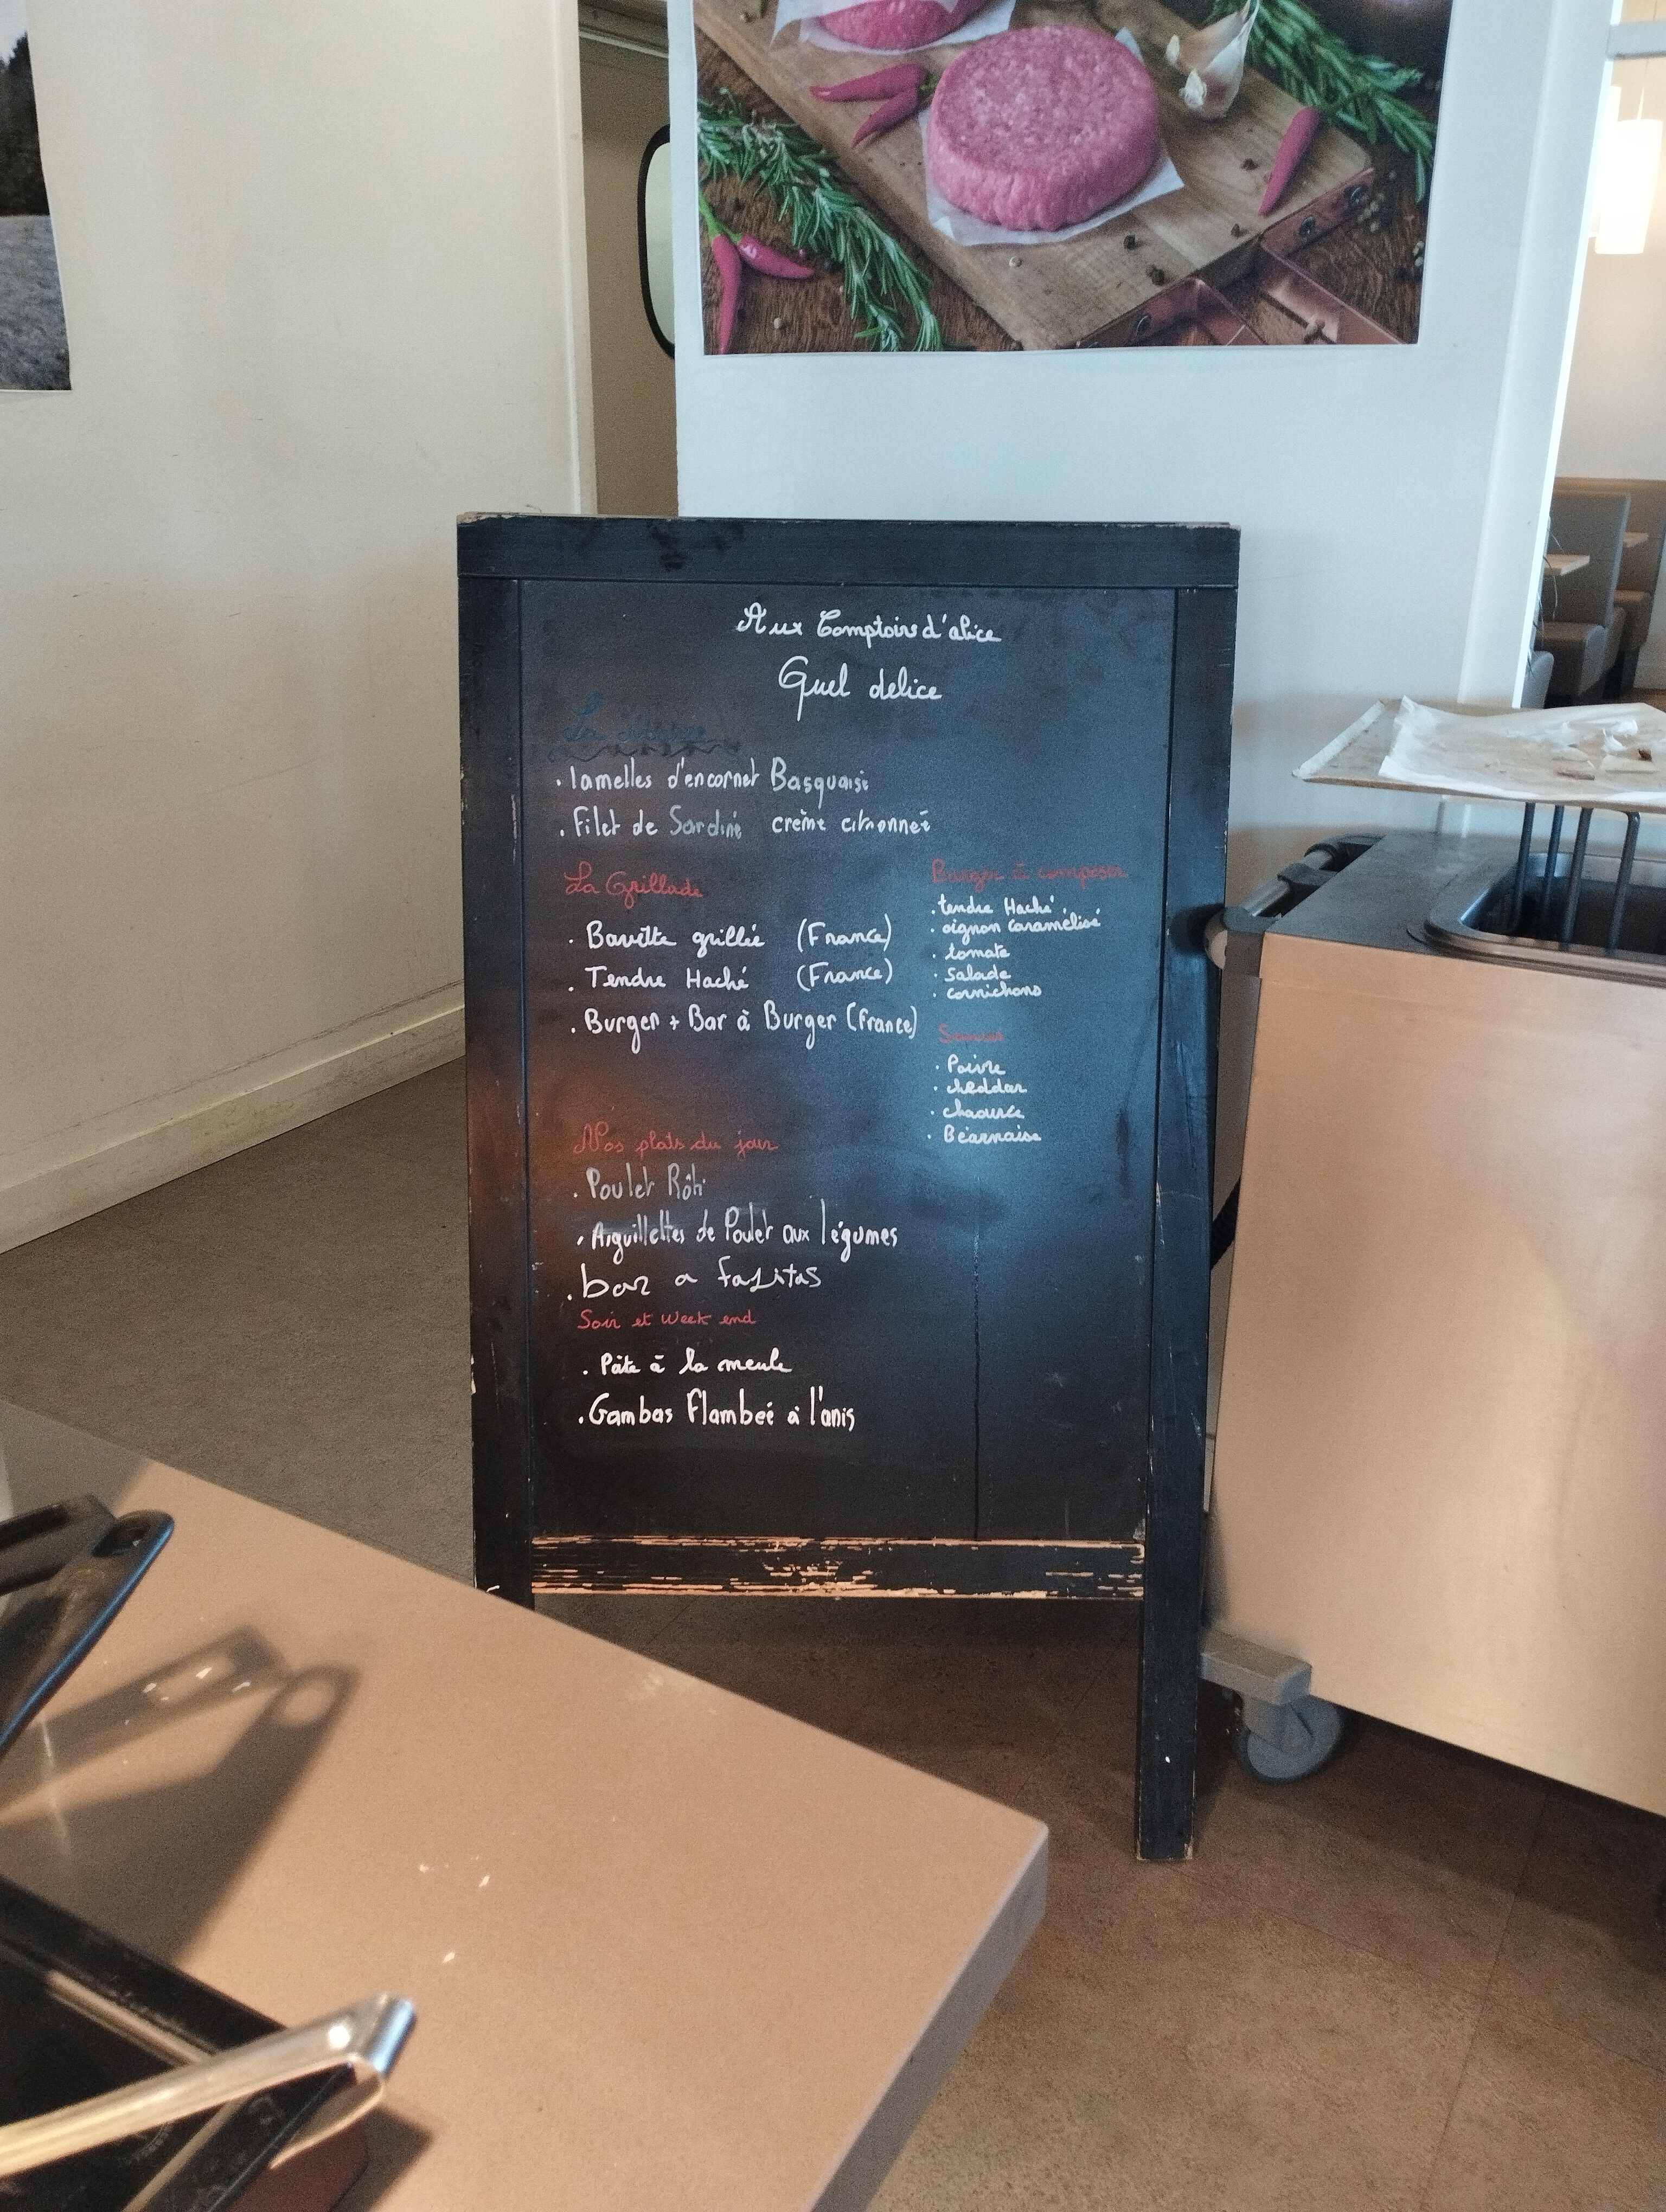 Aux Comptoirs d'alice
Quel delice
La Marée
. lamelles d'encornet Basquaise
. Filet de Sardine crème citronneé
La Grillade
. Bavette grillée (France)
. Tendre Haché (France)
. Burger + Bar à Burger (France)
Burger à composer
. tendre Haché.
. oignon caramélisé
. tomate
. Salade
. cornichons
Sauces
. Poivre
. cheddar
. chaource
. Béarnaise
Nos plats du jour
. Poulet Rôti
. Aiguillettes de Poulet aux légumes
. bar a fajitas
Soir et Week end
. Pâte à la meule
. Gambas Flambeé à l'anis